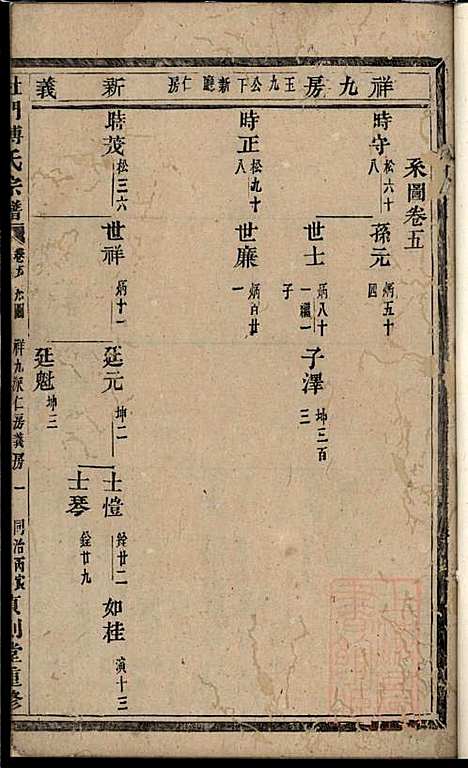 系圖卷五
祥九房 王九公下新廳仁房 新義
時守 松六十八
孫元 炳五十四
時正 松九十八
世士 炳八十一繼一子
子澤 坤三百三
世廉 炳百廿一
時茂 松三六
世祥 炳十一
廷元 坤二
士愷 銓廿二
如桂 演十三
士琴 銓廿九
廷魁 坤三
杜門傅氏宗譜
卷五 系圖 祥九房仁房義房 一
同治丙寅貞則堂重修